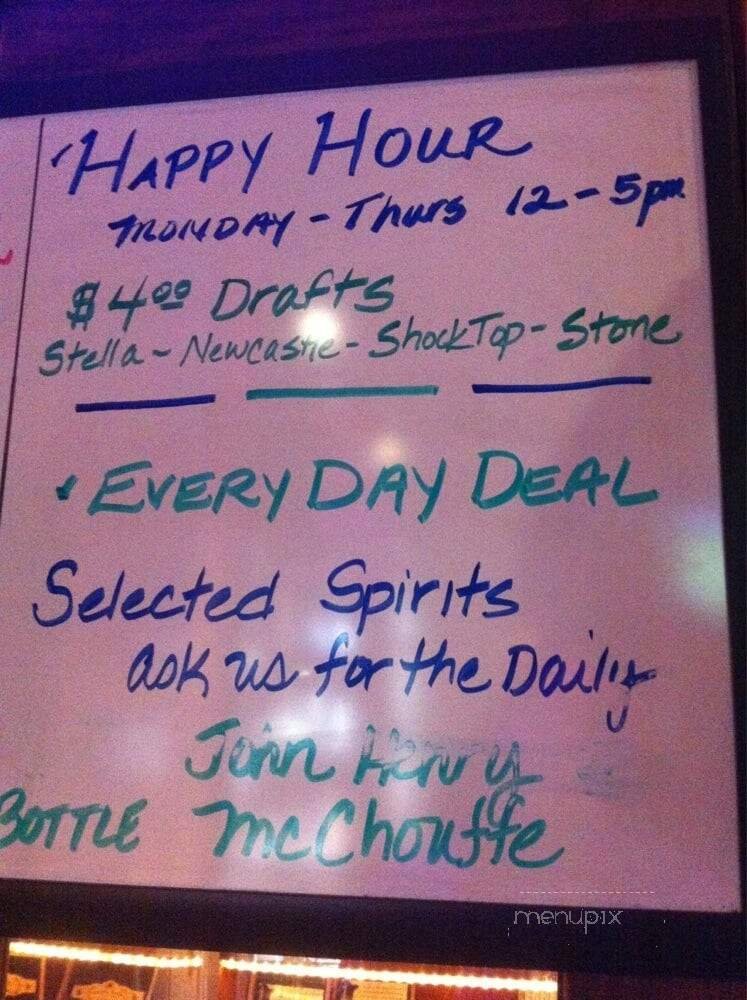 HAPPY HOUR
MONDAY - Thurs 12-5pm
$4.00 Drafts
Stella - Newcastle - ShockTop - Stone
EVERY DAY DEAL
Selected Spirits
ask us for the Daily
John Henry
BOTTLE McChouffe
menupix